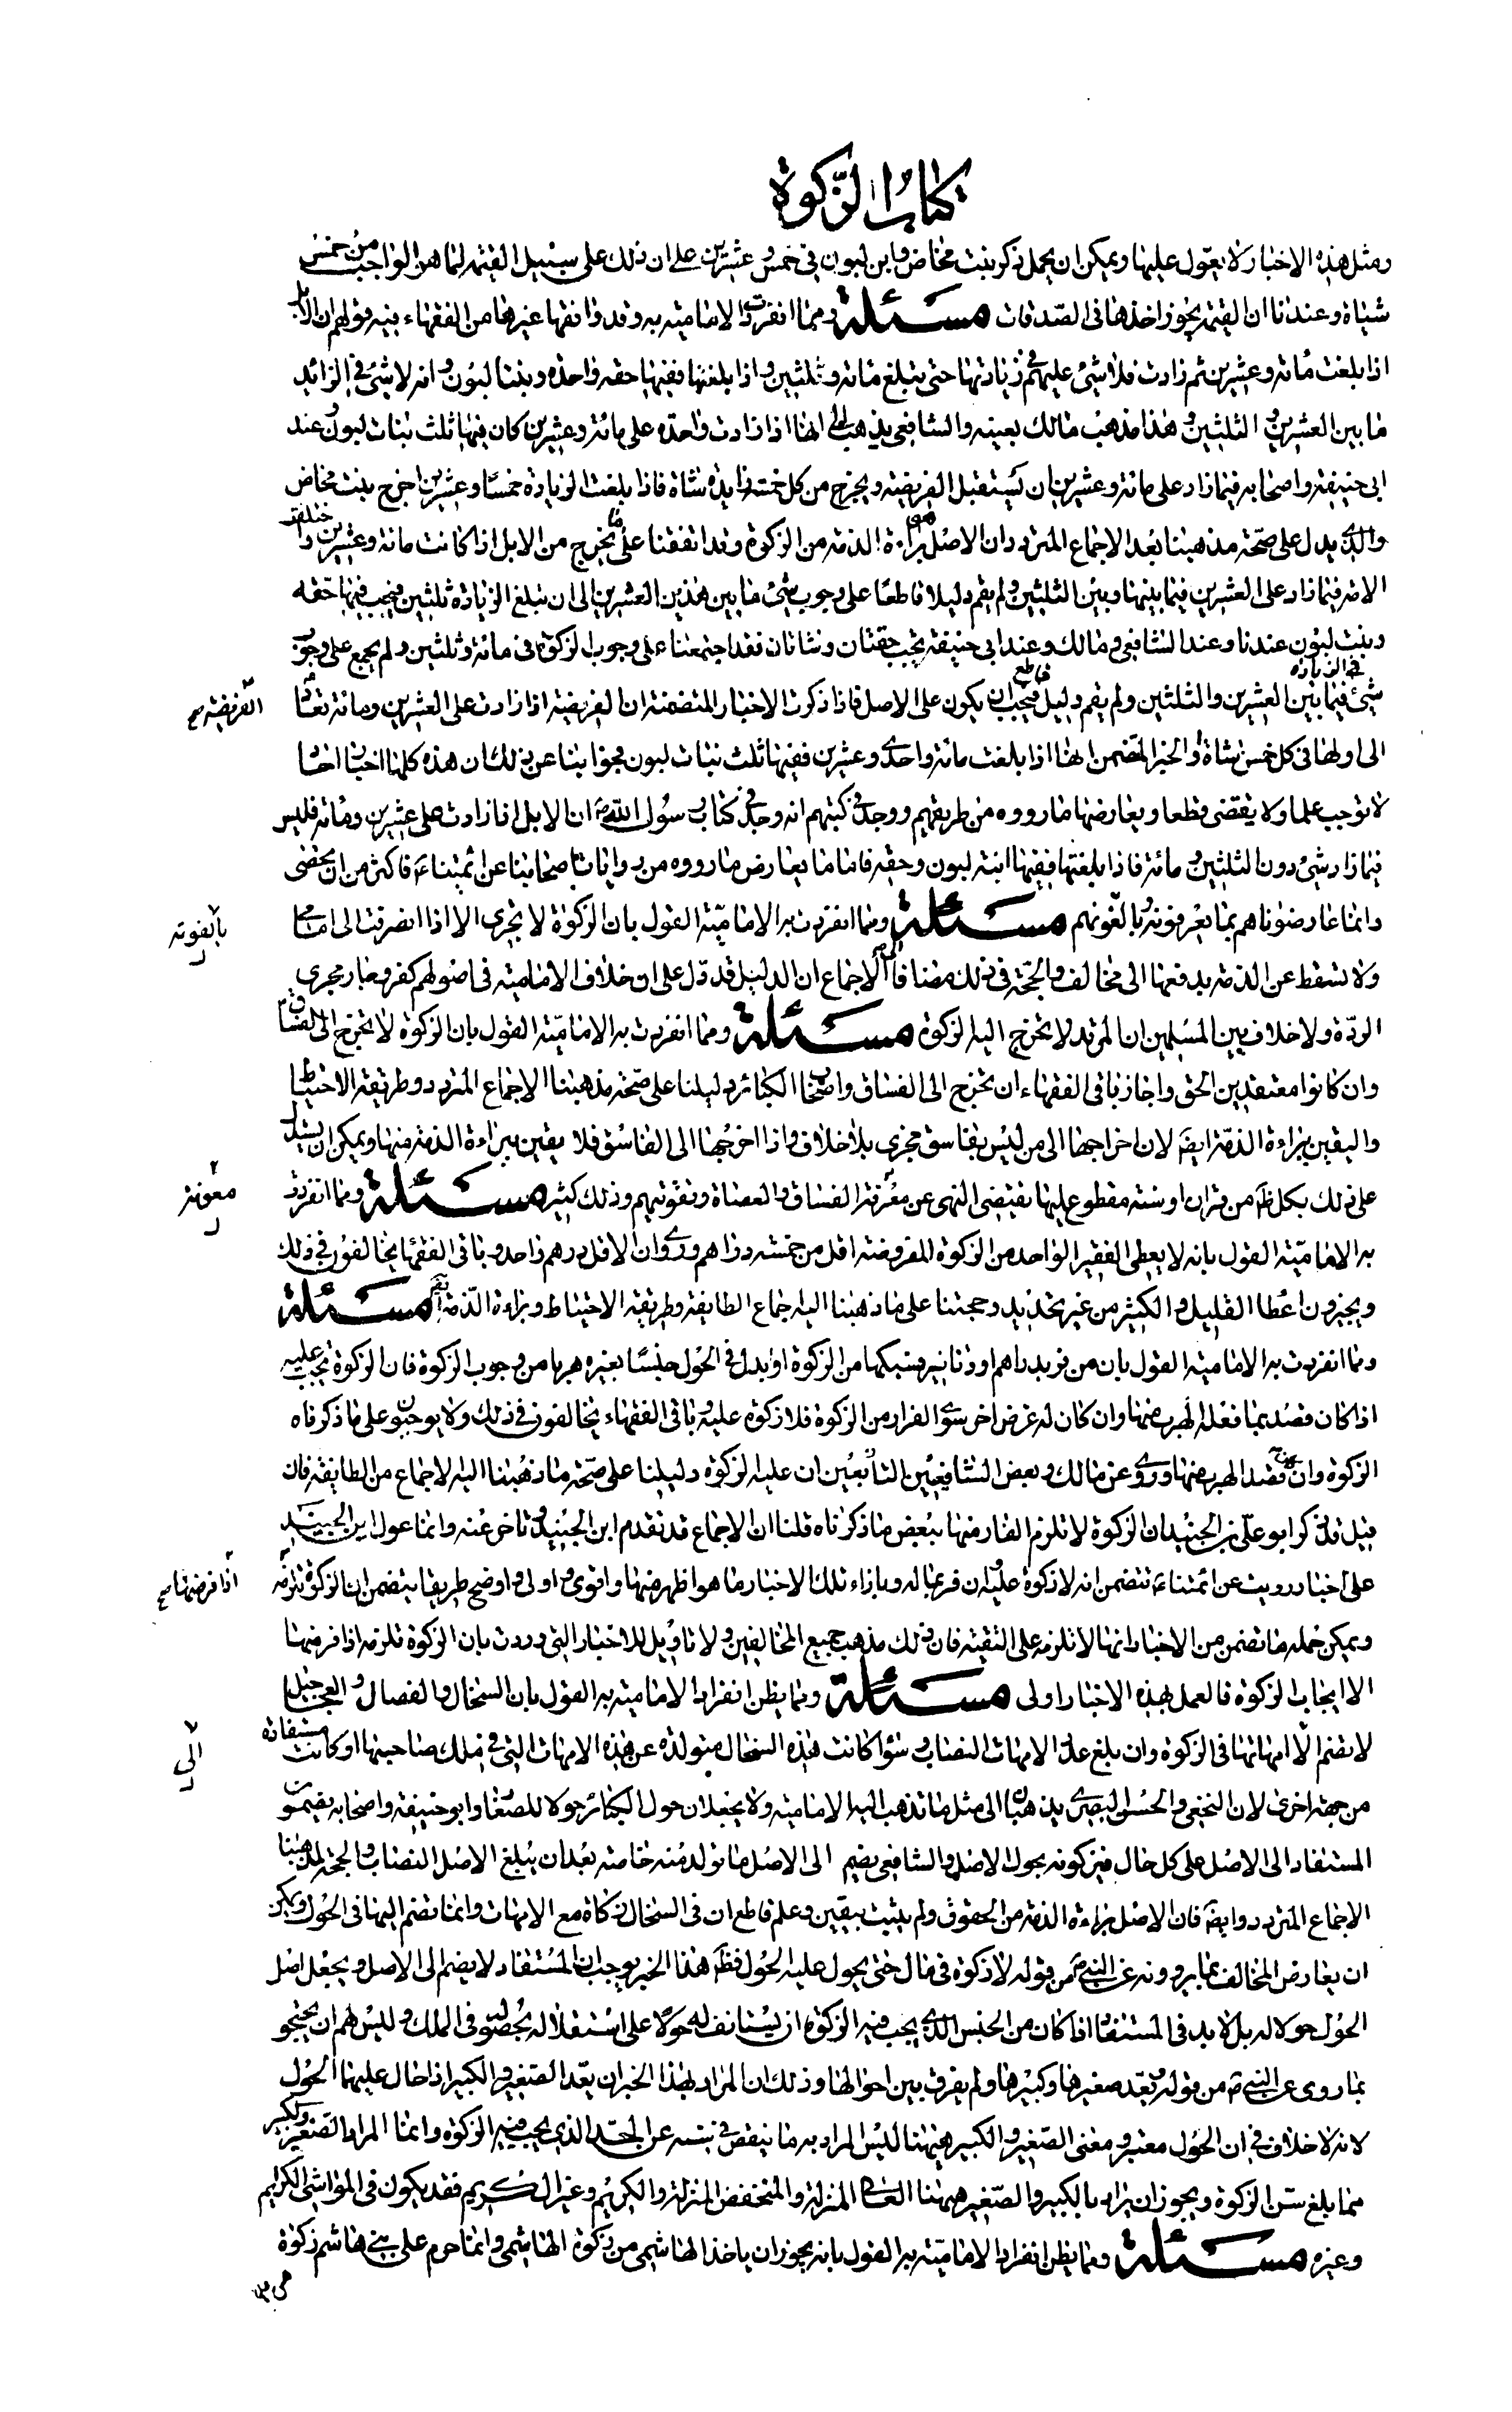 كتاب الزكوة
ومثل هذه الاخبار لا يعوّل عليها ويمكن ان يحمل ذكر بنت مخاض وابن لبون فى خمس وعشرين على ان ذلك على سبيل القيمة لما هو الواجب من خمس
شياة وعندنا ان القيمة يجوز اخذها فى الصّدقات مسئلة ومما انفردت الامامية به وقد وافقها غيرها من الفقهاء فيه قولهم ان الابل
اذا بلغت مائة وعشرين ثم زادت فلا شئ عليهم فى زيادتها حتى يبلغ مائة وثلثين واذا بلغتها ففيها حقة واحدة وبنتا لبون وانه لا شئ فى الزائد
ما بين العشرين والثلثين وهذا مذهب مالك بعينه والشافعى يذهب الى انها اذا زادت واحدة على مائة وعشرين كان فيها ثلث بنات لبون وعند
ابى حنيفة واصحابه فيما زاد على مائة وعشرين ان يستقبل الفريضة ويخرج من كل خمسة زايدة شاة فاذا بلغت الزيادة خمسا وعشرين اخرج بنت مخاض
والذى يدل على صحّة مذهبنا بعد الاجماع المتردد ان الاصل هو براءة الذمة من الزكوة وقد اتفقنا على ما يخرج من الابل اذا كانت مائة وعشرين واختلفت
الامة فيما زاد على العشرين فيما بينها وبين الثلثين ولم يقم دليلا قاطعا على وجوب شئ ما بين هذين العشرين الى ان تبلغ الزيادة ثلثين فيجب فيها حقة
وبنت لبون عندنا وعند الشافعى ومالك وعند ابى حنيفة يجب حقتان وشاتان فقد اجتمعنا على وجوب الزكوة فى مائة وثلثين ولم يجمع على وجوب
شئ فى الزيادة فيما بين العشرين والثلثين ولم يقم دليل قاطع فيجب ان يكون على الاصل فاذا ذكرت الاخبار المتضمنة ان الفريضة اذا زادت على العشرين ومائة تعاد
الفريضة صح
الى اولها فى كل خمس شاة والخبر المتضمن انها اذا بلغت مائة واحدى وعشرين ففيها ثلث بنات لبون فجوابنا عن ذلك ان هذه كلها اخبار احاد
لا توجب علما ولا يقتضى قطعا ويعارضها ما رووه من طريقهم ووجد فى كتبهم انه وجد فى كتاب رسول الله ص ان الابل اذا زادت على عشرين ومائة فليس
فيما زاد شئ دون الثلثين ومائة فاذا بلغتها ففيها ابنة لبون وحقة فاما ما يعارض ما رووه من روايات اصحابنا عن ائمتنا ع فاكثر من ان يحصى
وانما عارضناهم بما يعرفونه ويالفونهم مسئلة ومما انفردت به الامامية القول بان الزكوة لا يجزى الا اذا انصرفت الى امامى
يالفونه
ولا تسقط عن الذمة بدفعها الى مخالف والحجّة فى ذلك مضافا الى الاجماع ان الدليل قد دل على ان خلاف الامامية فى اصولهم كفر وجار مجرى
الردّة ولا خلاف بين المسلمين ان المرتد لا تخرج اليه الزكوة مسئلة ومما انفردت به الامامية القول بان الزكوة لا تخرج الى الفساق
وان كانوا معتقدين الحق واجاز باقى الفقهاء ان تخرج الى الفساق واصحاب الكبائر دليلنا على صحّة مذهبنا الاجماع المتردد وطريقة الاحتياط
واليقين ببراءة الذمّة ايضا لان اخراجها الى من ليس بفاسق مجزى بلا خلاف واذا اخرجها الى الفاسق فلا يقين ببراءة الذمة منها ويمكن ان يستدل
على ذلك بكل ظاهر من قران او سنة مقطوع عليها يقتضى النهى عن معونة الفساق والعصاة وتقويتهم وذلك كثير مسئلة ومما انفردت
معونة
به الامامية القول بانه لا يعطى الفقير الواحد من الزكوة المفروضة اقل من خمسة دراهم وروى وان الاقل درهم واحد وباقى الفقهاء يخالفون فى ذلك
ويجيزون اعطا القليل والكثير من غير تحديد وحجتنا على ما ذهبنا اليه اجماع الطايفة وطريقة الاحتياط وبراءة الذمة ايضا مسئلة
ومما انفردت به الامامية القول بان من فر بدراهم او دنانير فسبكها من الزكوة او ابدل فى الحول جنسا بغيره هربا من وجوب الزكوة فان الزكوة تجب عليه
اذا كان قصد بما فعله الهرب منها وان كان له غرض اخر سوى الفرار من الزكوة فلا زكوة عليه وباقى الفقهاء يخالفون فى ذلك ولا يوجبون على ما ذكرناه
الزكوة وان كان قصد الهرب منها وروى عن مالك وبعض الشافعيين التابعين ان عليه الزكوة دليلنا على صحّة ما ذهبنا اليه الاجماع من الطايفة فان
قيل قد ذكر ابو على بن الجنيد ان الزكوة لا تلزم الفار منها ببعض ما ذكرناه قلنا ان الاجماع قد تقدم ابن الجنيد وتاخر عنه وانما عول ابن الجنيد
على اخبار رويت عن ائمتنا ع تتضمن انه لا زكوة عليه ان فر بماله وبازاء تلك الاخبار ما هو اظهر منها واقوى واولى واوضح طريقا يتضمن ان الزكوة تلزمه
اذا فر منها صح
ويمكن حمله ما تضمن من الاخبار انها لا تلزمه على التقية فان ذلك مذهب جميع المخالفين ولا تاويل للاخبار التى وردت بان الزكوة تلزمه اذا فر منها
الا ايجاب الزكوة فالعمل بهذه الاخبار اولى مسئلة ومما يظن انفراد الامامية به القول بان السخال والفصال والعجاجيل
لا يضم الا امهاتها فى الزكوة وان بلغ عدد الامهات النصاب وسوا كانت هذه السخال متولدة عن هذه الامهات التى فى ملك صاحبها او كانت مستفادة
الى
من جهة اخرى لان النخعى والحسن البصرى يذهبان الى مثل ما تذهب اليه الامامية ولا يجعلان حول الكبائر حولا للصغار وابو حنيفة واصحابه يضمون
المستفاد الى الاصل على كل حال فيزكونه بحول الاصل والشافعى يضم الى الاصل ما تولد منه خاصة بعد ان يبلغ الاصل النصاب والحجة لمذهبنا
الاجماع المتردد وايضا فان الاصل براءة الذمة من الحقوق ولم يثبت بيقين وعلم قاطع ان فى السخال زكاة مع الامهات وانما تضم اليها فى الحول ويمكن
ان يعارض المخالف بما يروونه عن النبى ص من قوله لا زكوة فى مال حتى يحول عليه الحول فظاهر هذا الخبر يوجب ان المستفاد لا يضم الى الاصل ويجعل اصل
الحول حولا له بل لا بد فى المستفاد اذا كان من الجنس الذى يجب فيه الزكوة ان يستانف له حولا على استقلاله بحصوله فى الملك وليس لهم ان يحتجو
بما روى عن النبى ص من قوله ويعد صغيرها وكبيرها ولم يفرق بين احوالها وذلك ان المراد بهذا الخبر ان يعد الصغير والكبير اذا حال عليهما الحول
لانه لا خلاف فى ان الحول معتبر ومعنى الصّغير والكبير هيهنا ليس المراد به ما ينقص فى سنه عن الحد الذى يجب فيه الزكوة وانما المراد الصّغير والكبير
مما بلغ سن الزكوة ويجوز ان يراد بالكبير والصّغير هيهنا العالى المنزلة والمنخفض المنزلة والكريم وغير الكريم فقد يكون فى المواشى الكرايم
وغيره مسئلة ومما يظن انفراد الامامية به القول بانه يجوز ان ياخذ الهاشمى من زكوة الهاشمى وانما حرم على بنى هاشم زكوة